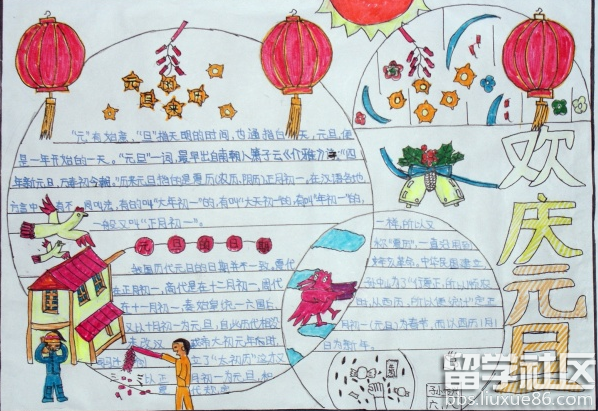 元旦来历
"元"有始意,"旦"指天明的时间,也通指白天,元旦,便
是一年开始的一天。"元旦"一词,最早出自南朝人萧子云《介雅》诗:"四
年新元旦,万寿初今朝。"历来元旦指的是夏历(农历、阴历)正月初一。在汉语各地
方言中有不同叫法,有的叫"大年初一"的,有叫"大天初一"的,有叫"年初一"的,
一般又叫"正月初一"。
元旦的日期
我国历代元旦的日期并不一致。夏代
在正月初一,商代是在十二月初一,周代
在十一月初一,秦始皇统一六国后,
又以十月初一为元旦,自此历代相沿
未改汉
了"太初历"这才又
以正月初一为元旦,和
一样,所以又
称"夏历",一直沿用到
辛亥革命。中华民国建立
孙中山为了"行夏正,所以顺农
时,从西历,所以便统计"定正
月初一(元旦)为春节,而以西历1月1
日为新年。
欢庆元旦
留学社区
bbs.liuxue86.com